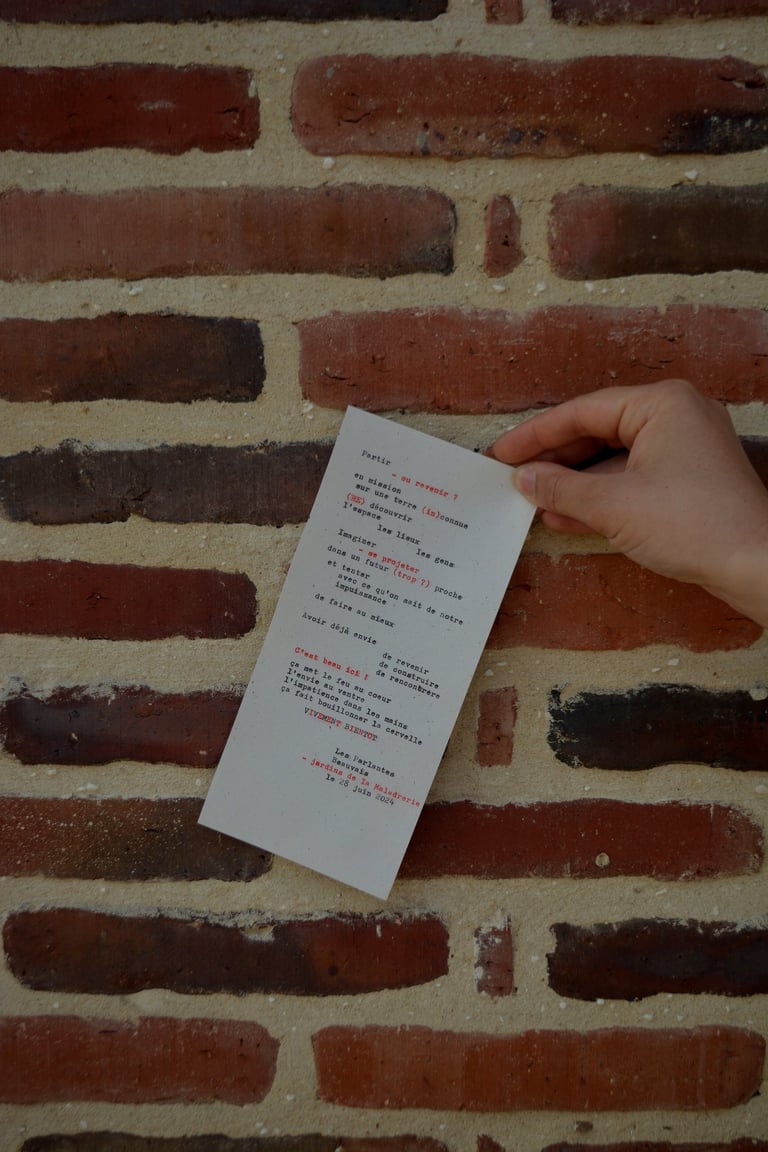 Partir
- ou revenir ?
en mission
sur une terre (in)connue
(RE) découvrir
l'espace
les lieux
les gens
Imaginer
- se projeter
dans un futur (trop ?) proche
et tenter
avec ce qu'on sait de notre
impuissance
de faire au mieux
Avoir déjà envie
de revenir
de construire
de rencontrère
C'est beau ici !
ça met le feu au coeur
l'envie au ventre
l'impatience dans les mains
ça fait bouillonner la cervelle
VIVEMENT BIENTOT
Les Parlantes
Beauvais
- jardins de la Maladrerie
le 28 juin 2024